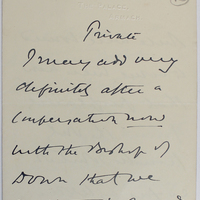 Private
I may add very
definitely after a
conversation now
with the Bishop of
Down that we